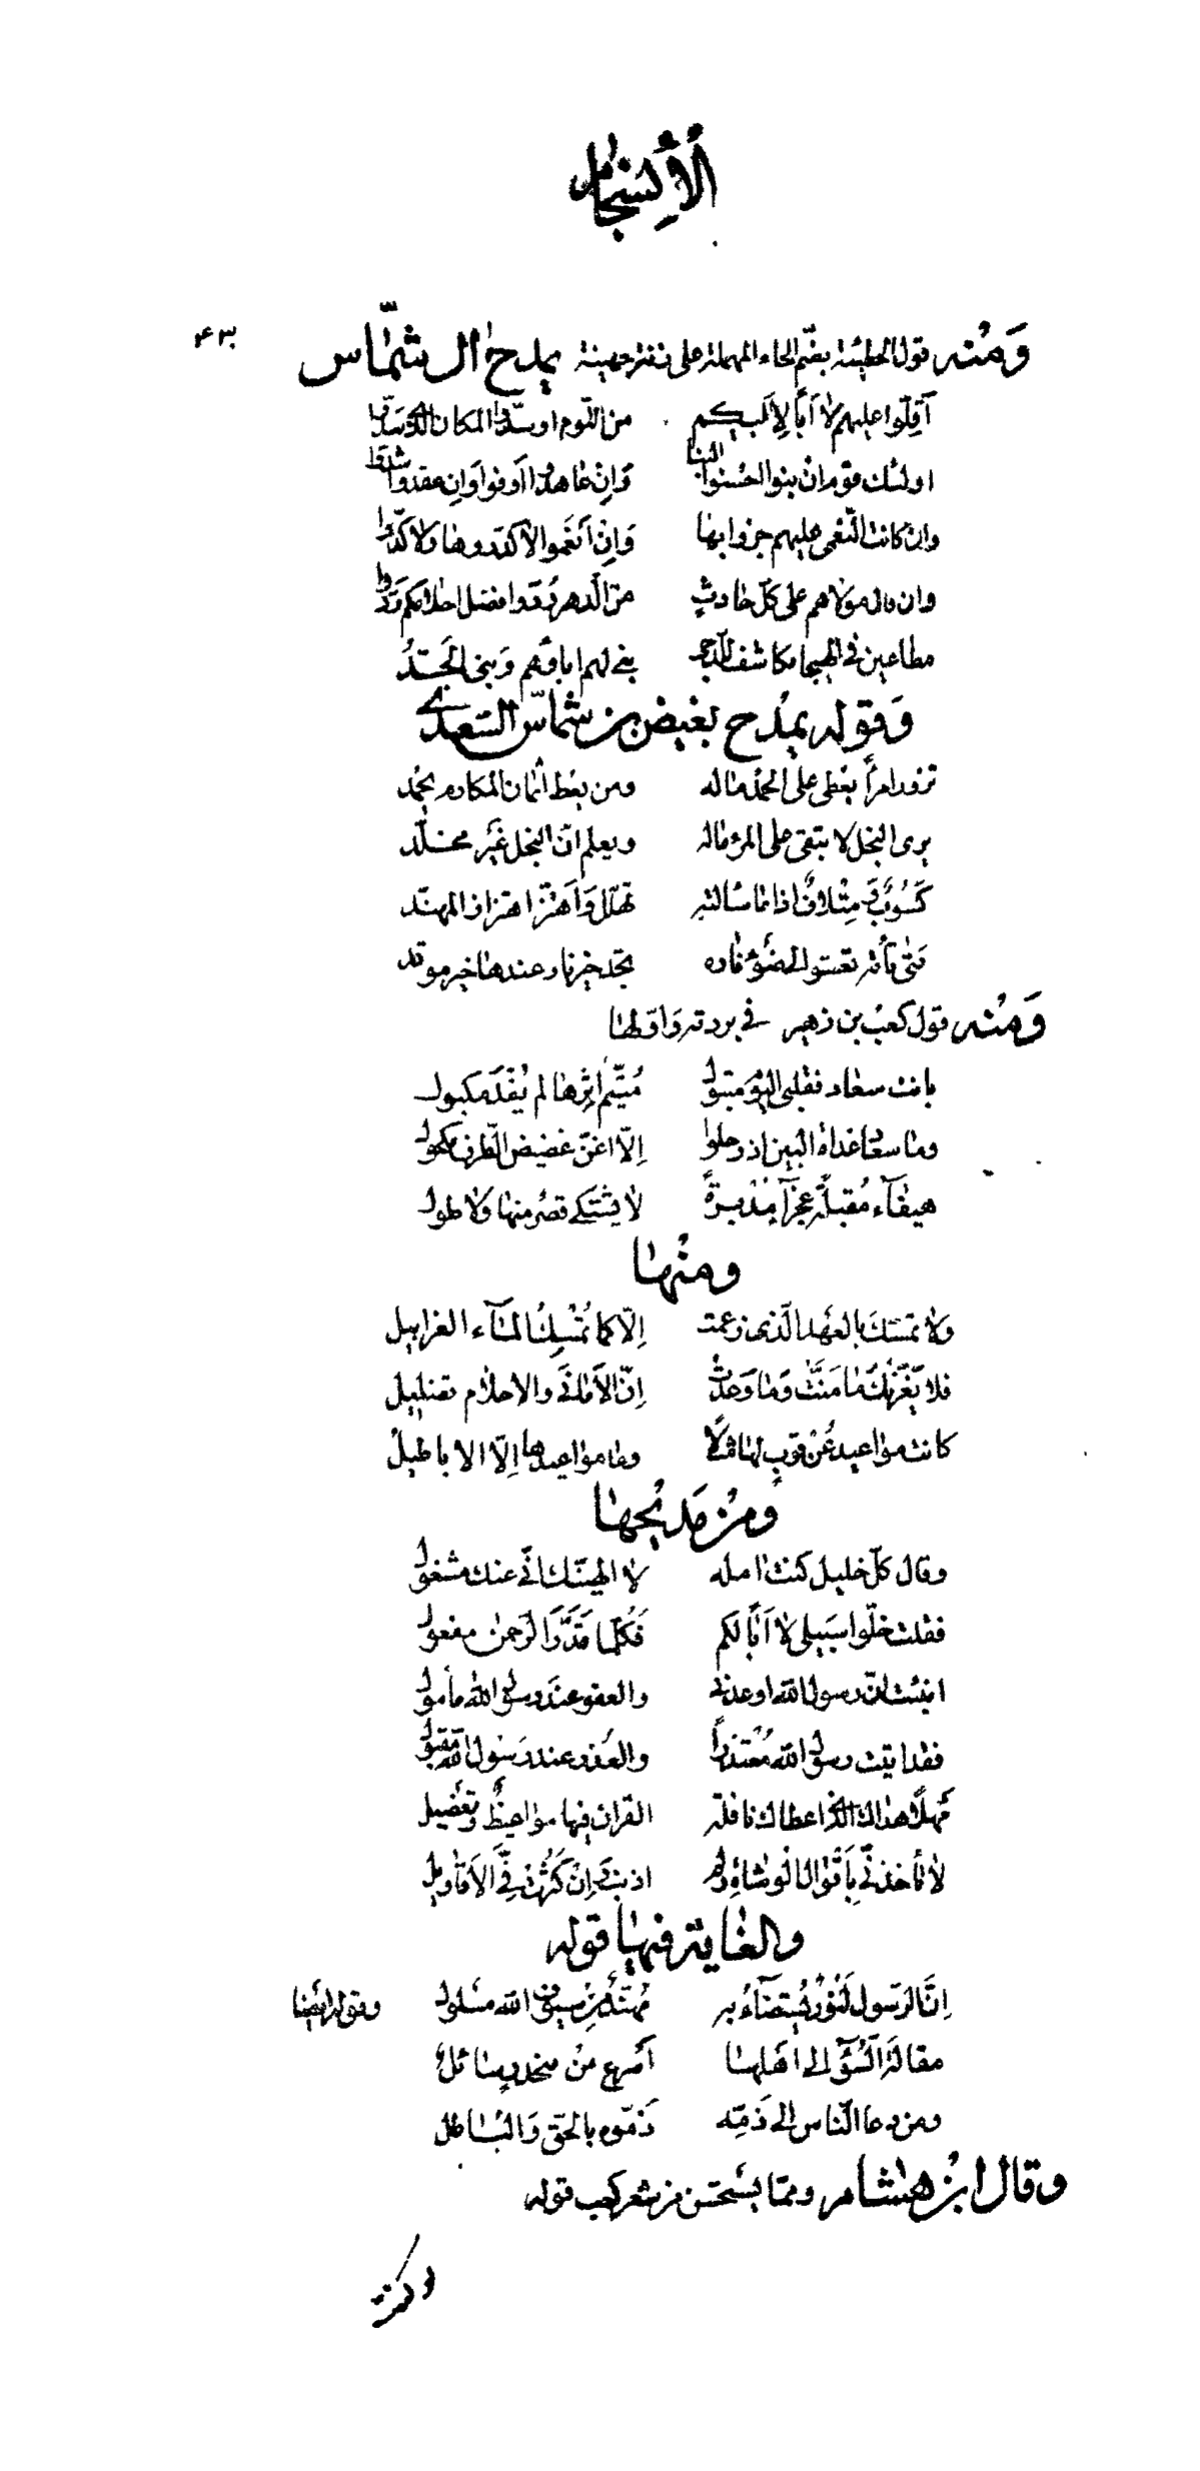 الانسجام
ومنه قول الحطيئة بضم الحاء المهملة على زنة جهينة يمدح ال شماس
أقلوا عليهم لا أبا لأبيكم من اللوم او سدوا المكان الذي سدوا
اولئك قوم ان بنوا احسنوا البنا وان عاهدوا أوفوا وان عقدوا شدوا
وان كانت النعمى عليهم جزوا بها وان أنعموا لا كدروها ولا كدوا
وان قال مولاهم على كل حادث من الدهر ردوا فضل احلامكم ردوا
مطاعين في الهيجا مكاشف للدجى بنى لهم اباؤهم وبنى الجد
وقوله يمدح بغيض بن شماس السعدي
تزور امرأ يعطى على الحمد ماله ومن يعط اثمان المكارم يحمد
يرى البخل لا يبقى على المرء ماله ويعلم ان البخل غير مخلد
كسوب ومتلاف اذا ما سالته تهلل واهتز اهتزاز المهند
متى تأته تعشو الى ضوء ناره تجد خير نار عندها خير موقد
ومنه قول كعب بن زهير في بردته واولها
بانت سعاد فقلبى اليوم متبول متيم اثرها لم يفد مكبول
وما سعاد غداة البين اذ رحلوا الا اغن غضيض الطرف مكحول
هيفآء مقبلة عجزآء مدبرة لا يشتكى قصر منها ولا طول
ومنها
ولا تمسك بالعهد الذى زعمت الا كما تمسك المآء الغرابيل
فلا يغرنك ما منت وما وعدت ان الأمانى والاحلام تضليل
كانت مواعيد عرقوب لها مثلا وما مواعيدها الا الاباطيل
ومن مديحها
وقال كل خليل كنت امله لا الهينك انى عنك مشغول
فقلت خلوا سبيلى لا أبا لكم فكلما قدر الرحمن مفعول
انبئت ان رسول الله اوعدنى والعفو عند رسول الله مأمول
فقد اتيت رسول الله معتذراً والعذر عند رسول الله مقبول
مهلا هداك الذى اعطاك نافلة القران فيها مواعيظ وتفصيل
لا تأخذنى بأقوال الوشاة ولم اذنب وان كثرت فى الأقاويل
والغاية فيها قوله
ان الرسول لنور يستضآء به مهند من سيوف الله مسلول وقوله ايضا
مقالة السوء الى اهلها أسرع من منحدر سائل
ومن دعا الناس الى ذمه ذموه بالحق وبالباطل
وقال ابن هشام ومما يستحسن من شعر كعب قوله